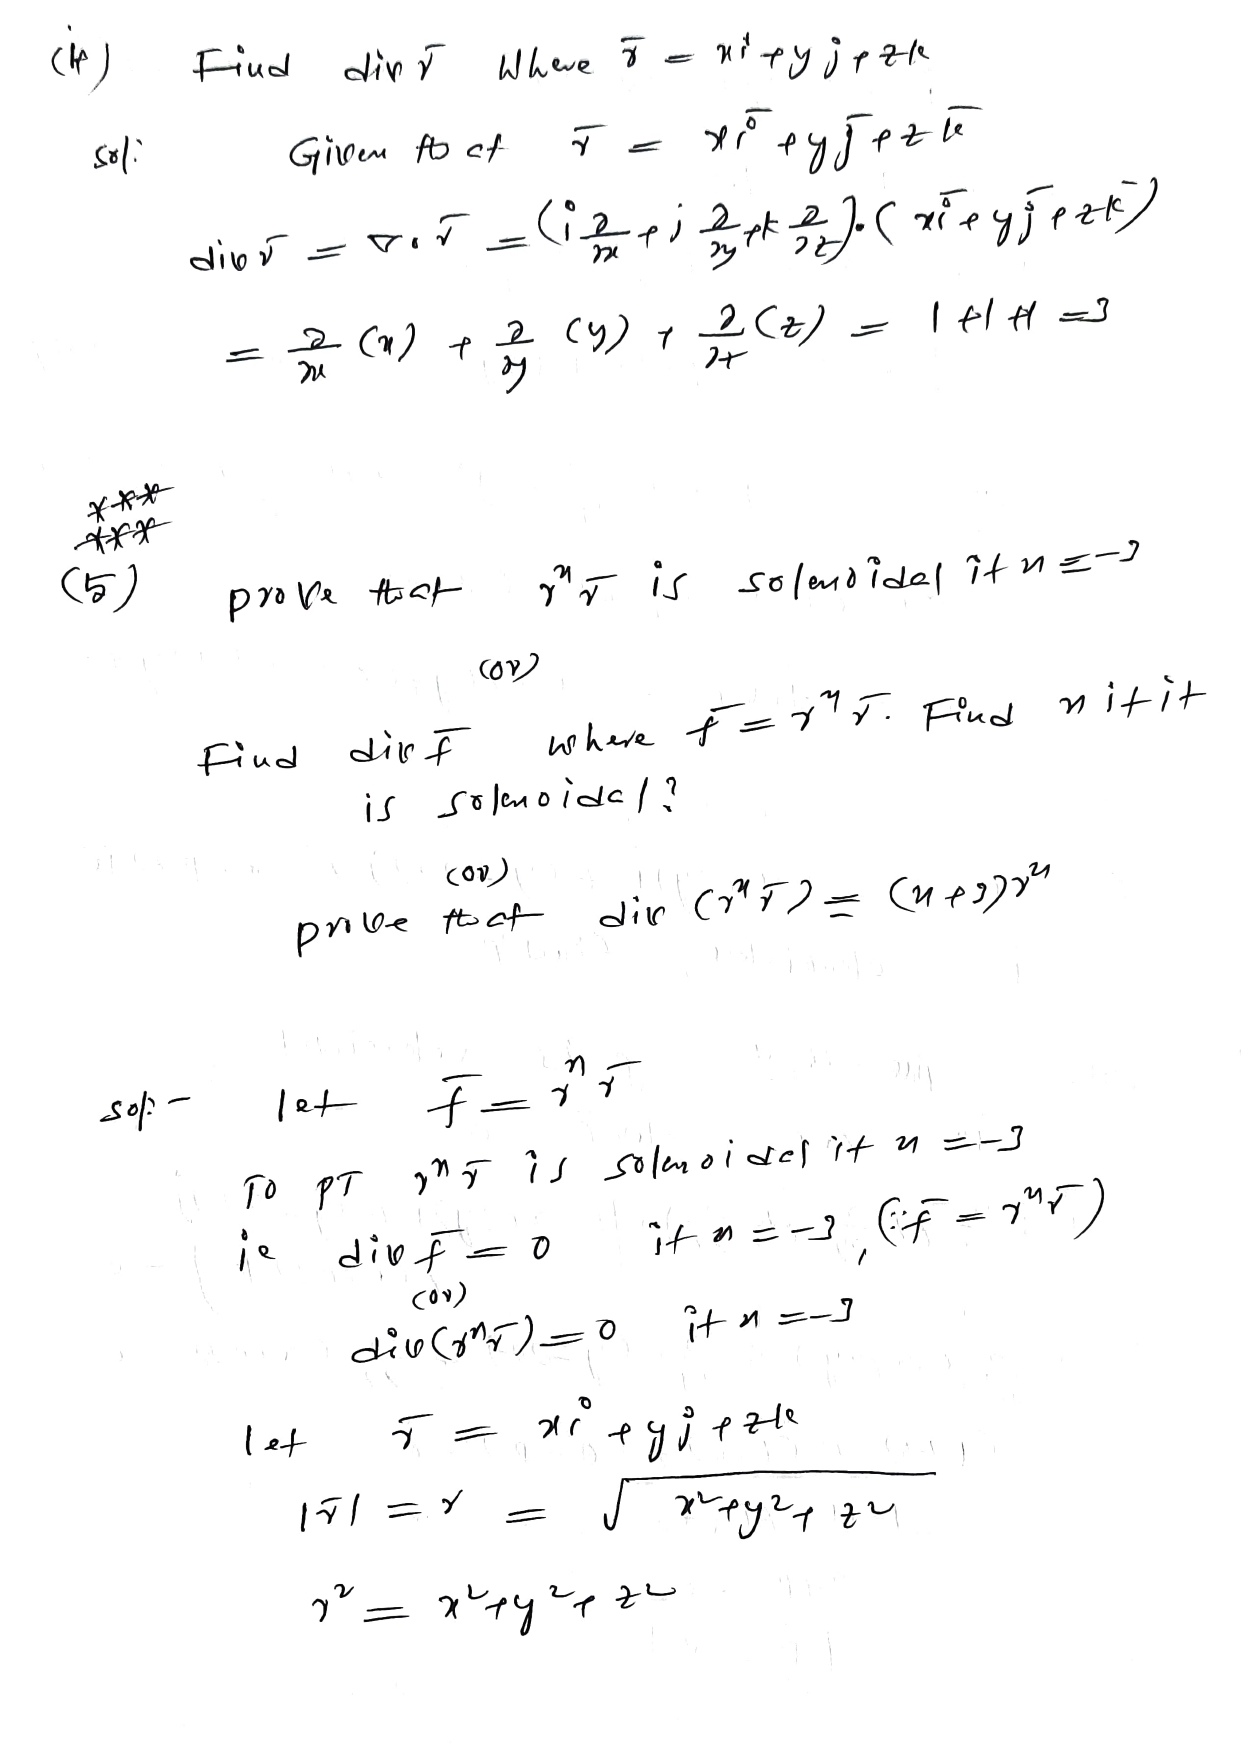 (4) Find div r̄ Where r̄ = xi + yj + zk
Sol: Given that r̄ = xī + yj̄ + zk̄
div r̄ = ∇ · r̄ = (i ∂/∂x + j ∂/∂y + k ∂/∂z) · (xī + yj̄ + zk̄)
= ∂/∂x (x) + ∂/∂y (y) + ∂/∂z (z) = 1+1+1 = 3
***
***
(5) prove that rⁿ r̄ is solenoidal if n = -3
(or)
Find div f̄ where f̄ = rⁿ r̄. Find n if it
is solenoidal?
(or)
prove that div (rⁿ r̄) = (n+3)rⁿ
sol:- let f̄ = rⁿ r̄
To PT rⁿ r̄ is solenoidal if n = -3
ie div f̄ = 0 if n = -3, (∵ f̄ = rⁿ r̄)
(or)
div(rⁿ r̄) = 0 if n = -3
let r̄ = xi + yj + zk
|r̄| = r = √(x²+y²+z²)
r² = x²+y²+z²